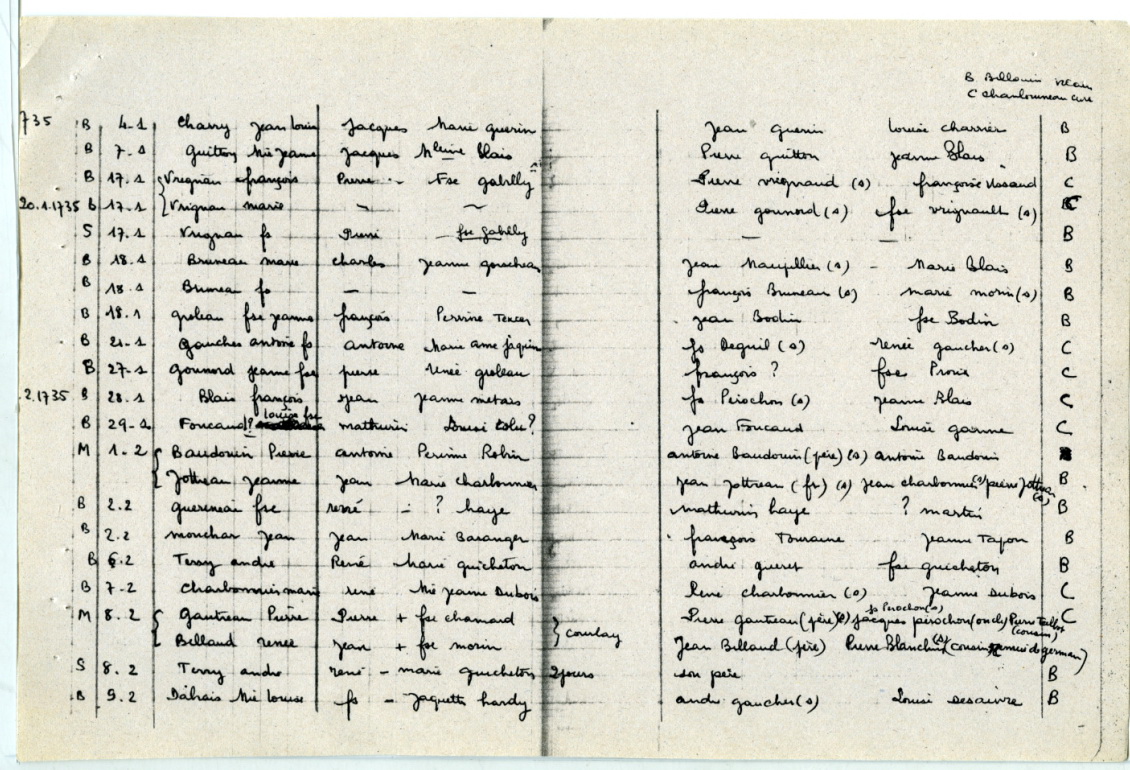 B Billouin vicaire
C Charbonneau cure
735 B 4-1 Charry Jean louis Jacques Marie guerin Jean guerin louise charrier B
B 7-1 guitton Mie jeanne Jacques Mleine Blais Pierre guitton jeanne Blais B
B 17.1 Vrignau françois Pierre - Fse gabilly Pierre vrignaud (s) françoise C
20.1.1735 B 17-1 Vrignau marie - ~ Pierre gounord (s) fse vrignault (s) C
S 17.1 Vrignau fs Pierre - fse gabilly - - B
B 18.1 Bruneau marie charles jeanne gourdeau jean (s) - Marie Blais B
B 18.1 Bruneau fs - - françois Bruneau (s) marie morin (s) B
B 18.1 groleau fse jeanne françois Perrine Texier jean Bodin fse Bodin B
B 21-1 gaucher antoine fs antoine Marie anne jaquin fs Deguil (s) renée gaucher (s) C
B 27-1 gounord jeanne fse pierre renée groleau françois ? fse C
2.1735 B 28.1 Blais françois jean jeanne metais fs Pirochon (s) jeanne Blais C
B 29-1 Foucaud ? louise fse mathurin Louise ? jean Foucaud Louise C
M 1-2 { Baudouin Pierre antoine Perrine Robin antoine Baudouin (père) (s) antoine Baudouin B
{ Jottreau jeanne jean Marie charbonnier jean jottreau (fr) (s) jean charbonnier (s) pierre jottreau (s) B
B 2.2 fse rené - ? haye mathurin haye ? martin B
B 2.2 mouchar jean jean Marie Baranger françois Touraine jeanne B
B 6.2 Terry andre René Marie guicheton andre gueret fse guicheton B
B 7-2 charbonnier marie rene Mie jeanne Dubois René charbonnier (s) Jeanne Dubois C
M 8.2 { gautreau Pierre Pierre + fse chamard } courlay Pierre gautreau (père) (s) fs Pirochon (s) jacques pirochon (oncle) Pierre (cousin) C
{ Billaud renée jean + fse morin Jean Billaud (père) Pierre Blanchin (s) (cousin germain)
S 8.2 Terry andre rené - marie guicheton 2 jours son père B
B 9.2 Mie louise fs - Jaquette hardy andre gaucher (s) Louise desaivre B